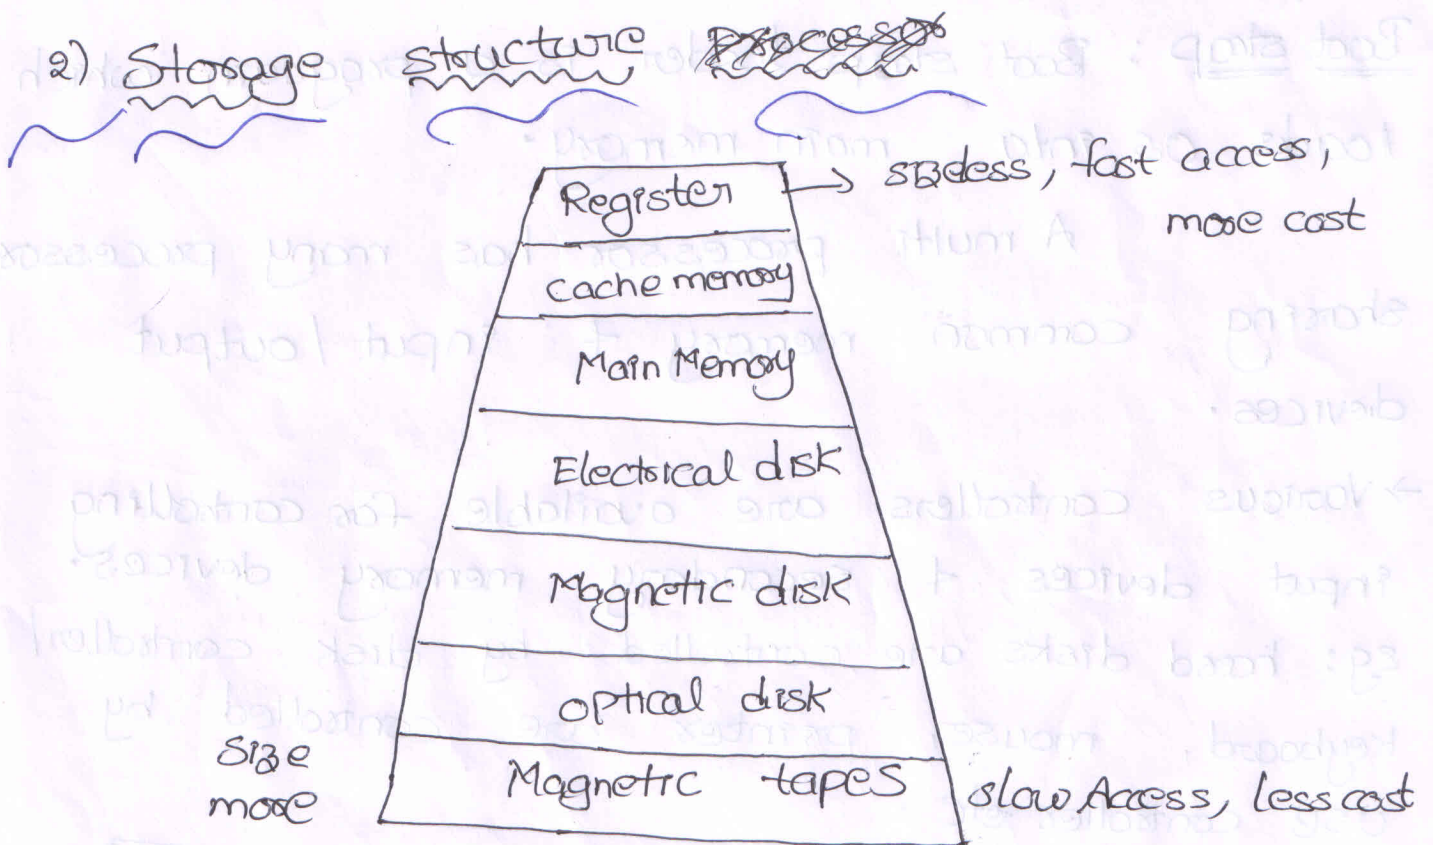 2) Storage structure
Register → sizeless, fast access,
more cost
cache memory
Main Memory
Electrical disk
Magnetic disk
optical disk
size
more
Magnetic tapes
slow Access, less cost